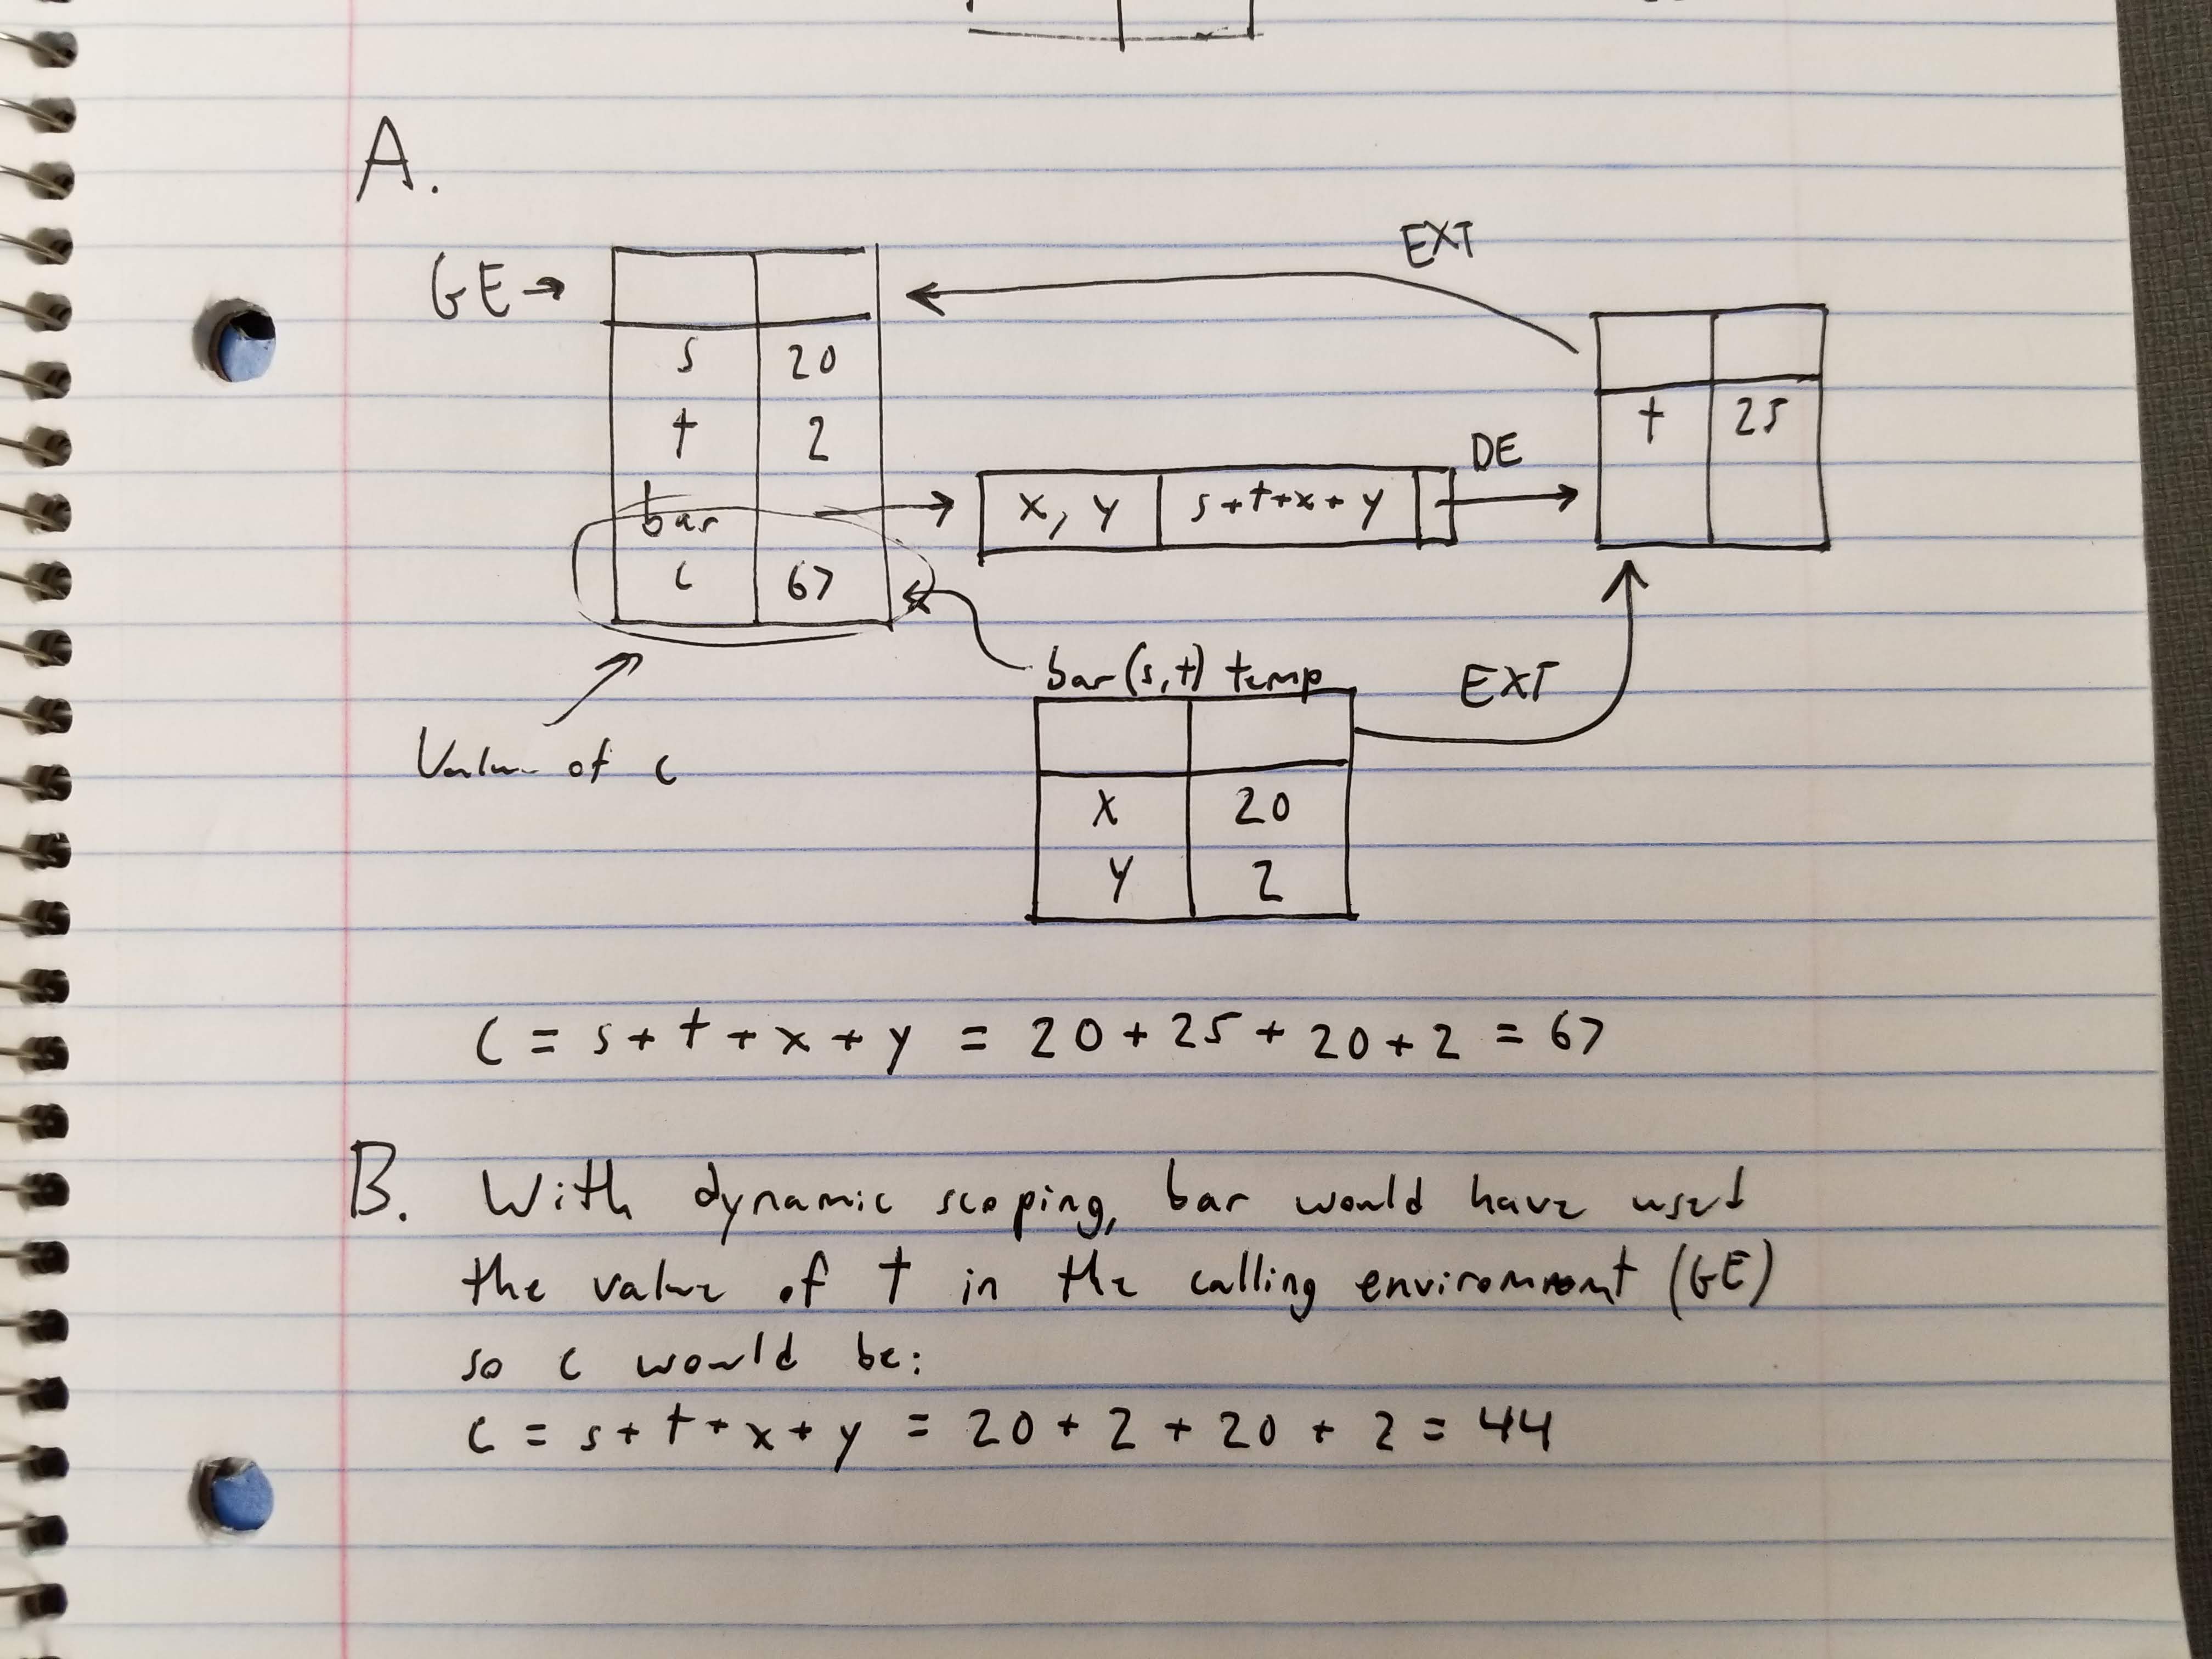 A.
EXT
GE →
s 20
t 2
t 25
DE
bar
x, y s+t+x+y
c 67
bar(s,t) temp
EXT
Value of c
x 20
y 2
c = s + t + x + y = 20 + 25 + 20 + 2 = 67
B. With dynamic scoping, bar would have used
the value of t in the calling environment (GE)
so c would be:
c = s + t + x + y = 20 + 2 + 20 + 2 = 44